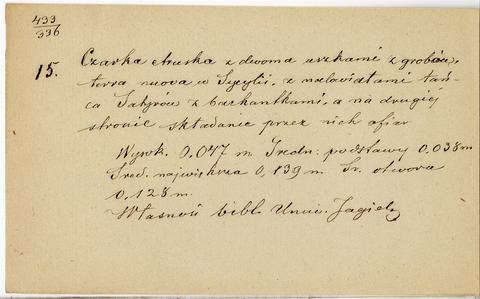 433
336
15. Czarka etruska z dwoma uszkami z grobów,
terra nuova w Sycylii, z malowidłami tań-
ca Satyrów z bachantkami, a na drugiej
stronie składanie przez nich ofiar
Wysok. 0,047 m. Średn: podstawy 0.038 m
Śred. największa 0,139 m Śr. otwora
0,128 m.
Własność bibl. Uniw. Jagiel.